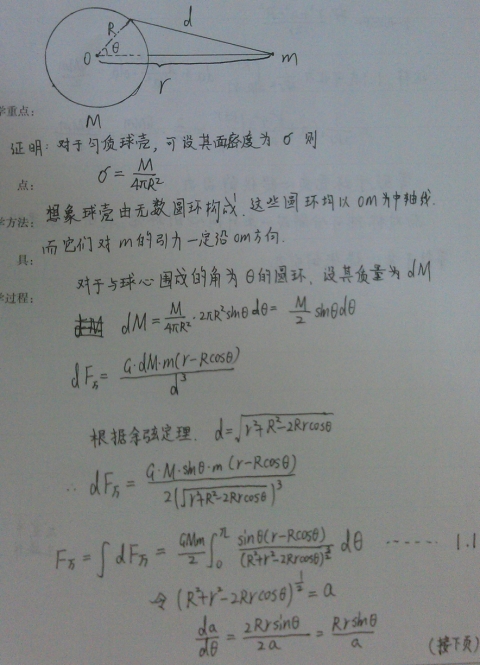 R
d
θ
O
m
r
M
学重点:
证明: 对于匀质球壳, 可设其面密度为 σ 则
点:
σ = M/4πR²
学方法:
想象球壳由无数圆环构成. 这些圆环均以 om 为中轴线.
而它们对 m 的引力一定沿 om 方向.
具:
对于与球心围成的角为 θ 的圆环, 设其质量为 dM
学过程:
dM = M/4πR² · 2πR² sinθ dθ = M/2 sinθdθ
dF万 = G·dM·m(r-Rcosθ)/d³
根据余弦定理. d=√(r²+R²-2Rrcosθ)
∴ dF万 = G·M·sinθ·m (r-Rcosθ)/2(√(r²+R²-2Rrcosθ))³
F万 = ∫dF万 = GMm/2 ∫₀^π sinθ(r-Rcosθ)/(R²+r²-2Rrcosθ)^(3/2) dθ ······ 1.1
令 (R²+r²-2Rrcosθ)^(1/2) = a
da/dθ = 2Rrsinθ/2a = Rrsinθ/a
(接下页)